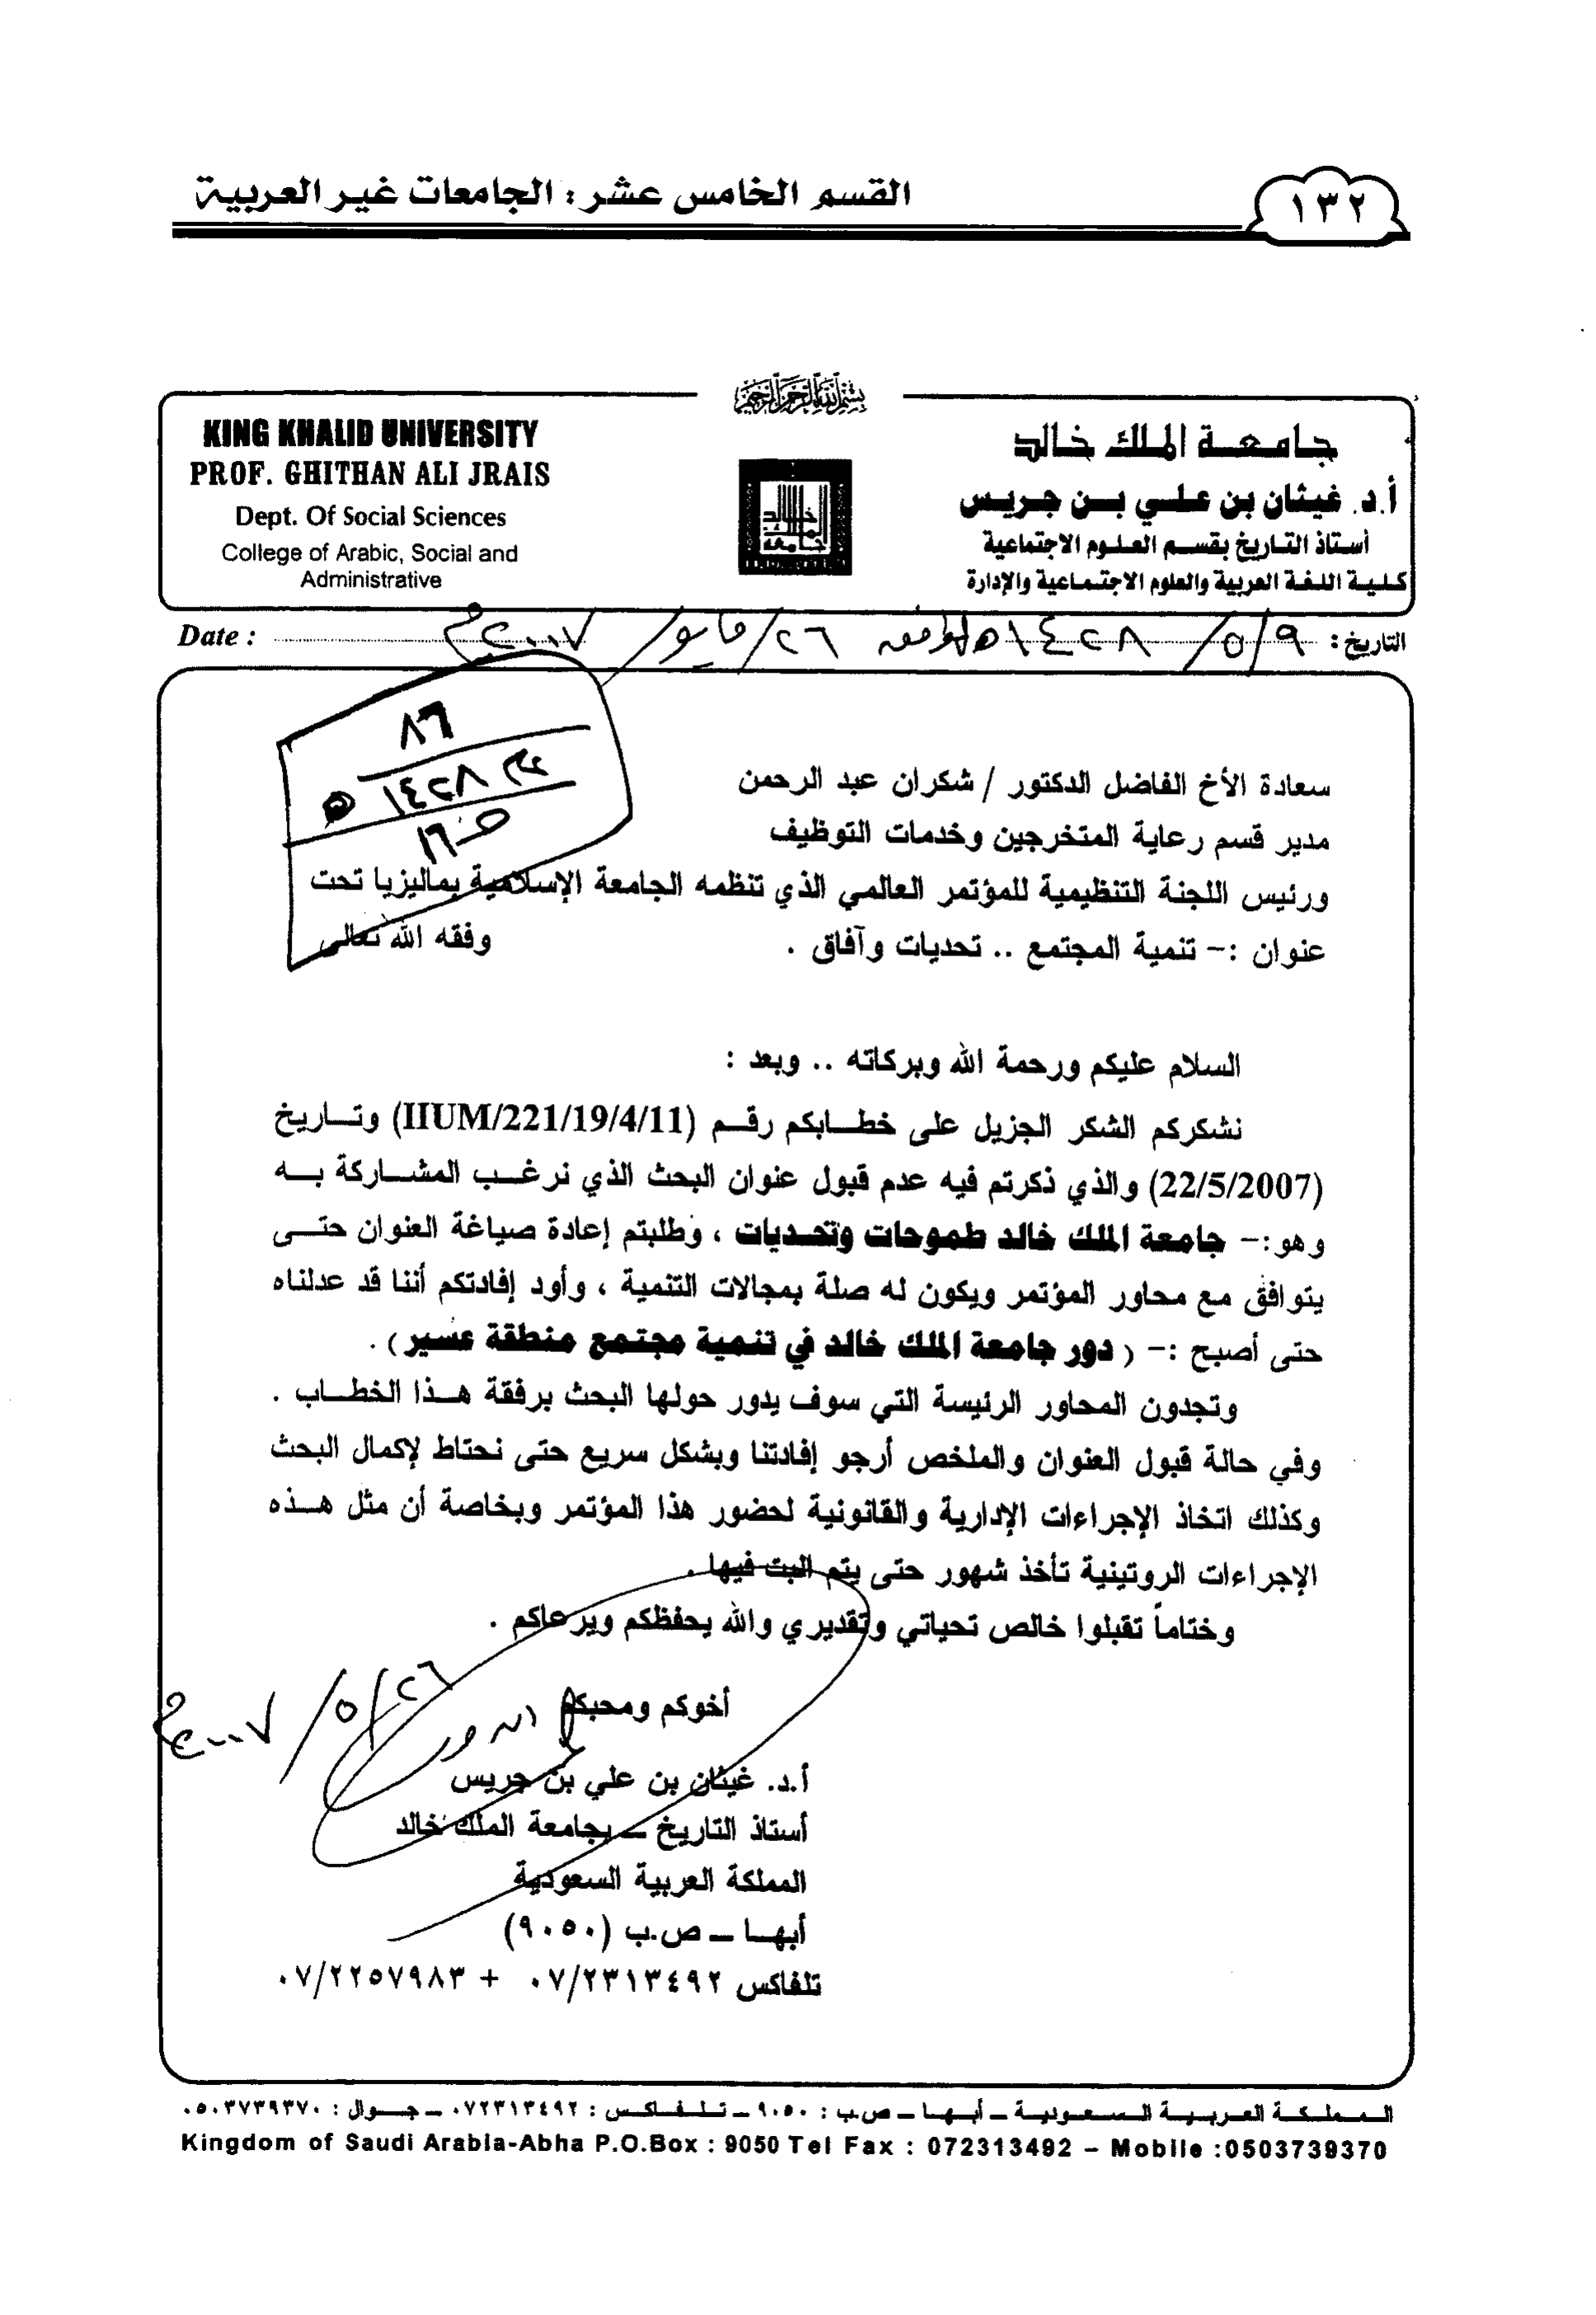 القسم الخامس عشر : الجامعات غير العربية
١٣٢
بسم الله الرحمن الرحيم
KING KHALID UNIVERSITY
PROF. GHITHAN ALI JRAIS
Dept. Of Social Sciences
College of Arabic, Social and
Administrative
جامعة الملك خالد
أ.د. غيثان بن علي بن جريس
أستاذ التاريخ بقسم العلوم الاجتماعية
كلية اللغة العربية والعلوم الاجتماعية والإدارة
التاريخ : ٩/٥/١٤٢٨هـ الموافق ٢٦/مايو/٢٠٠٧م
Date :
٨٦
١٤٢٨ هـ
ص١٦
سعادة الأخ الفاضل الدكتور / شكران عبد الرحمن
مدير قسم رعاية المتخرجين وخدمات التوظيف
ورئيس اللجنة التنظيمية للمؤتمر العالمي الذي تنظمه الجامعة الإسلامية بماليزيا تحت
عنوان :- تنمية المجتمع .. تحديات وآفاق . وفقه الله تعالى
السلام عليكم ورحمة الله وبركاته .. وبعد :
نشكركم الشكر الجزيل على خطابكم رقم (IIUM/221/19/4/11) وتاريخ
(22/5/2007) والذي ذكرتم فيه عدم قبول عنوان البحث الذي نرغب المشاركة به
وهو:- جامعة الملك خالد طموحات وتحديات ، وطلبتم إعادة صياغة العنوان حتى
يتوافق مع محاور المؤتمر ويكون له صلة بمجالات التنمية ، وأود إفادتكم أننا قد عدلناه
حتى أصبح :- ( دور جامعة الملك خالد في تنمية مجتمع منطقة عسير ) .
وتجدون المحاور الرئيسة التي سوف يدور حولها البحث برفقة هذا الخطاب .
وفي حالة قبول العنوان والملخص أرجو إفادتنا وبشكل سريع حتى نحتاط لإكمال البحث
وكذلك اتخاذ الإجراءات الإدارية والقانونية لحضور هذا المؤتمر وبخاصة أن مثل هذه
الإجراءات الروتينية تأخذ شهور حتى يتم البت فيها .
وختاماً تقبلوا خالص تحياتي وتقديري والله يحفظكم ويرعاكم .
أخوكم ومحبكم
٢٦/٥/٢٠٠٧م
أ.د. غيثان بن علي بن جريس
أستاذ التاريخ – بجامعة الملك خالد
المملكة العربية السعودية
أبها – ص.ب (٩٠٥٠)
تلفاكس ٠٧/٢٣١٣٤٩٢ + ٠٧/٢٢٥٧٩٨٣
المملكة العربية السعودية – أبها – ص.ب : ٩٠٥٠ – تلفاكس : ٠٧٢٣١٣٤٩٢ – جوال : ٠٥٠٣٧٣٩٣٧٠
Kingdom of Saudi Arabia-Abha P.O.Box : 9050 Tel Fax : 072313492 – Mobile :0503739370